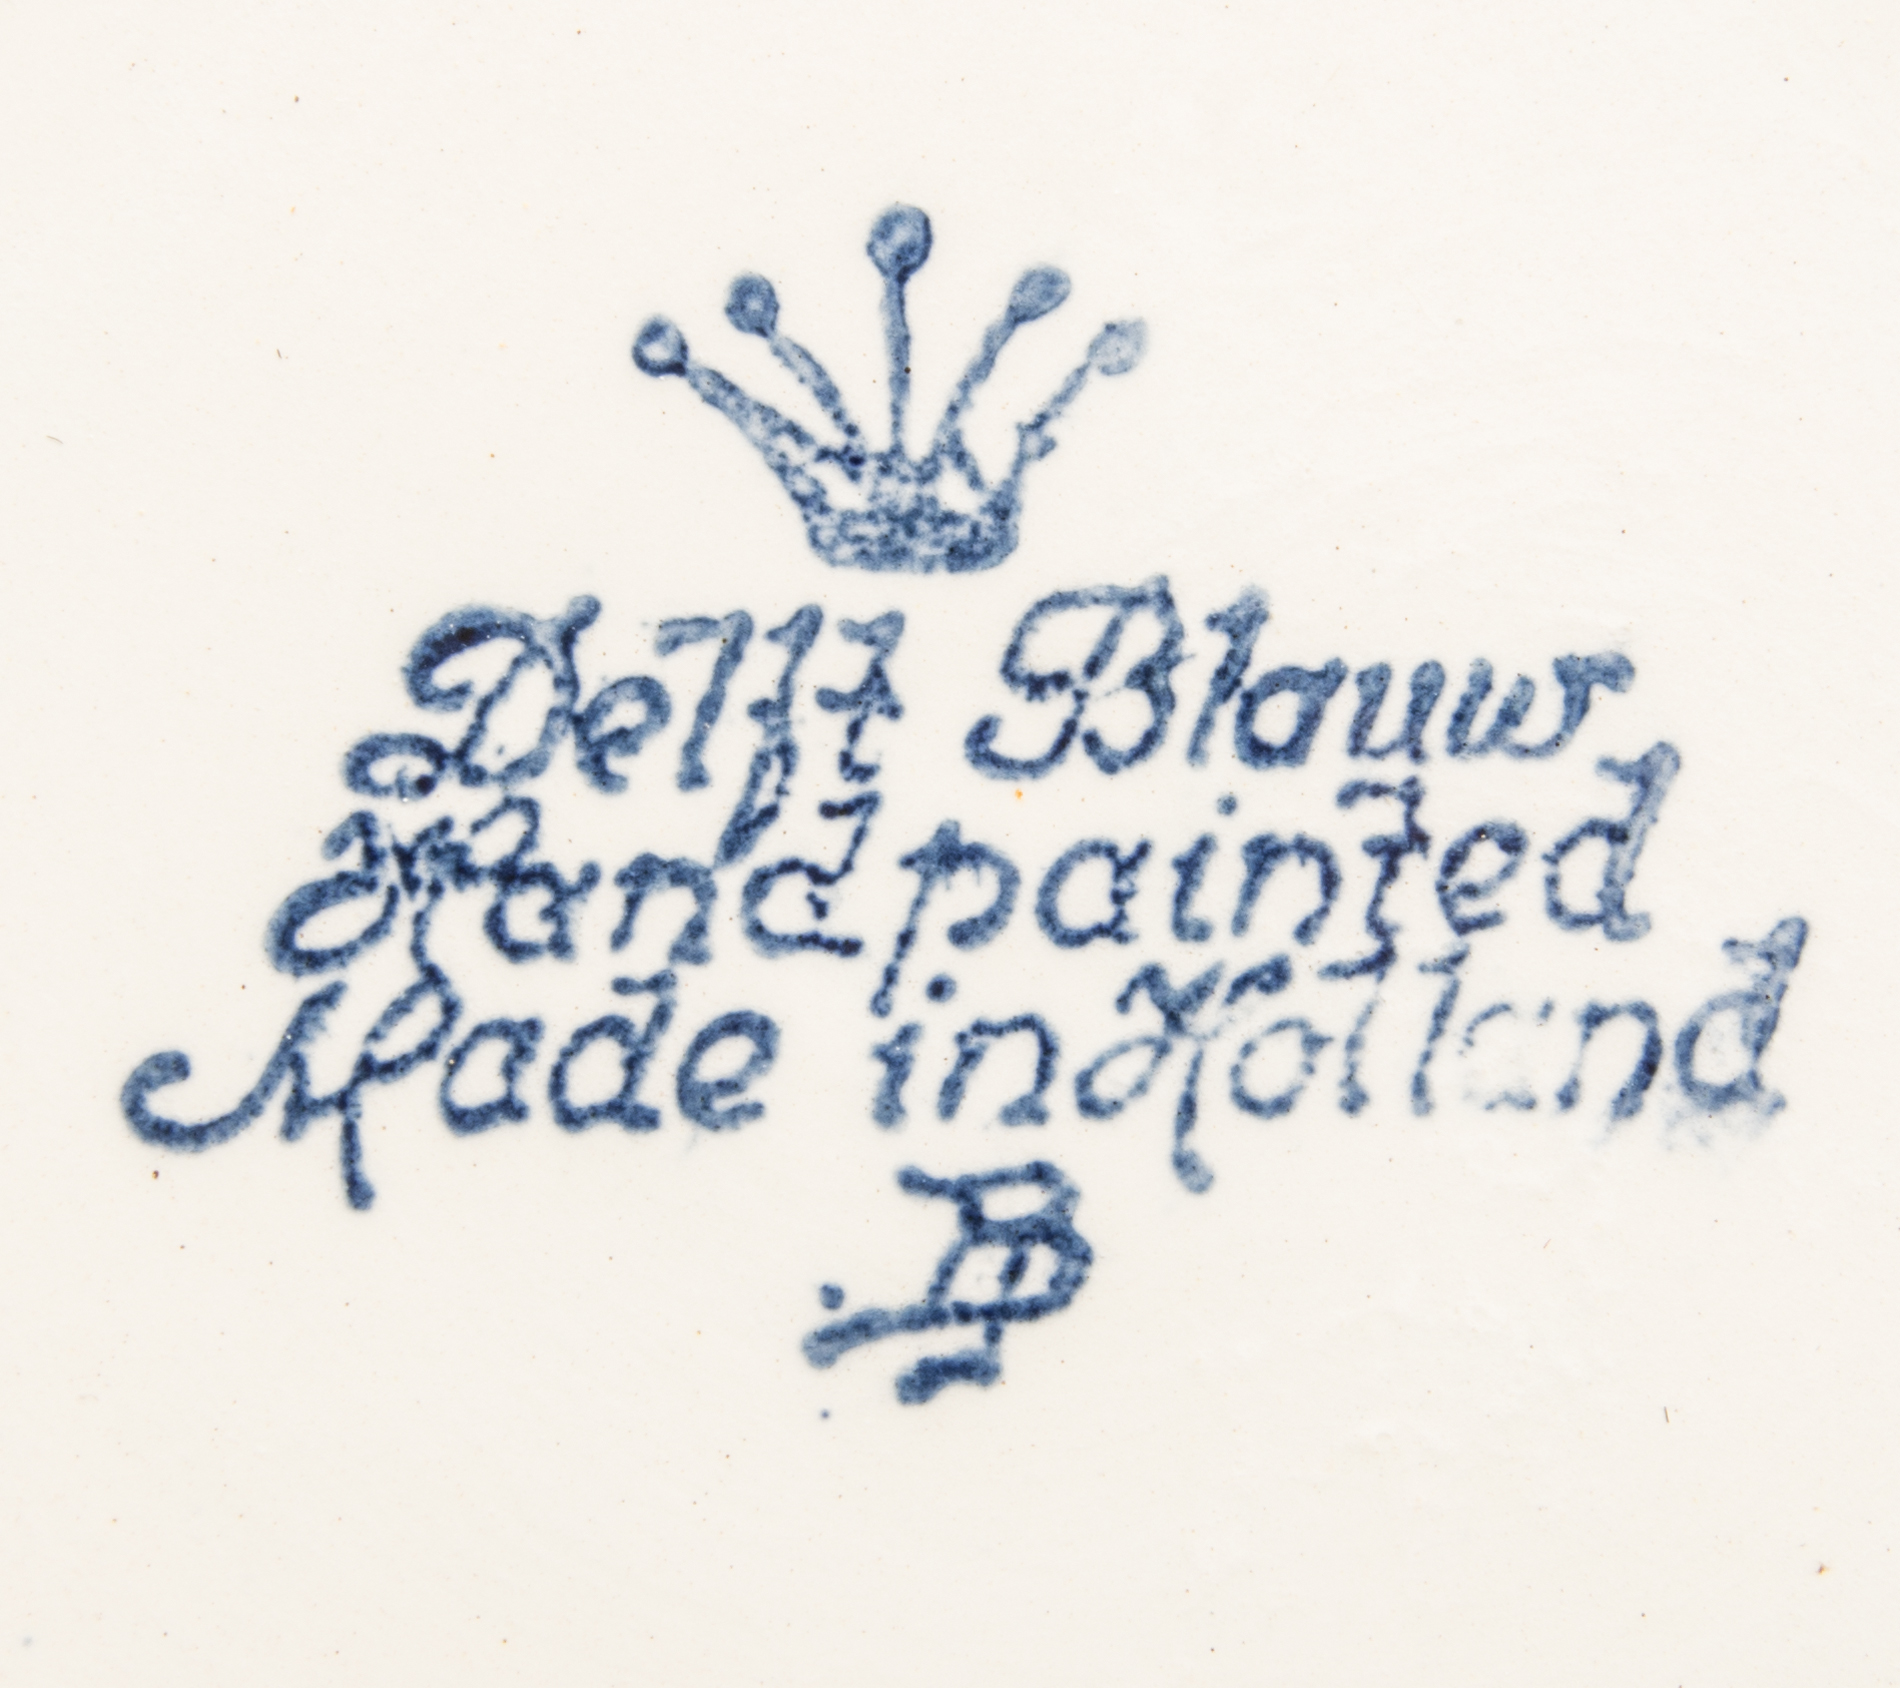 Delft Blauw
Handpainted
Made in Holland